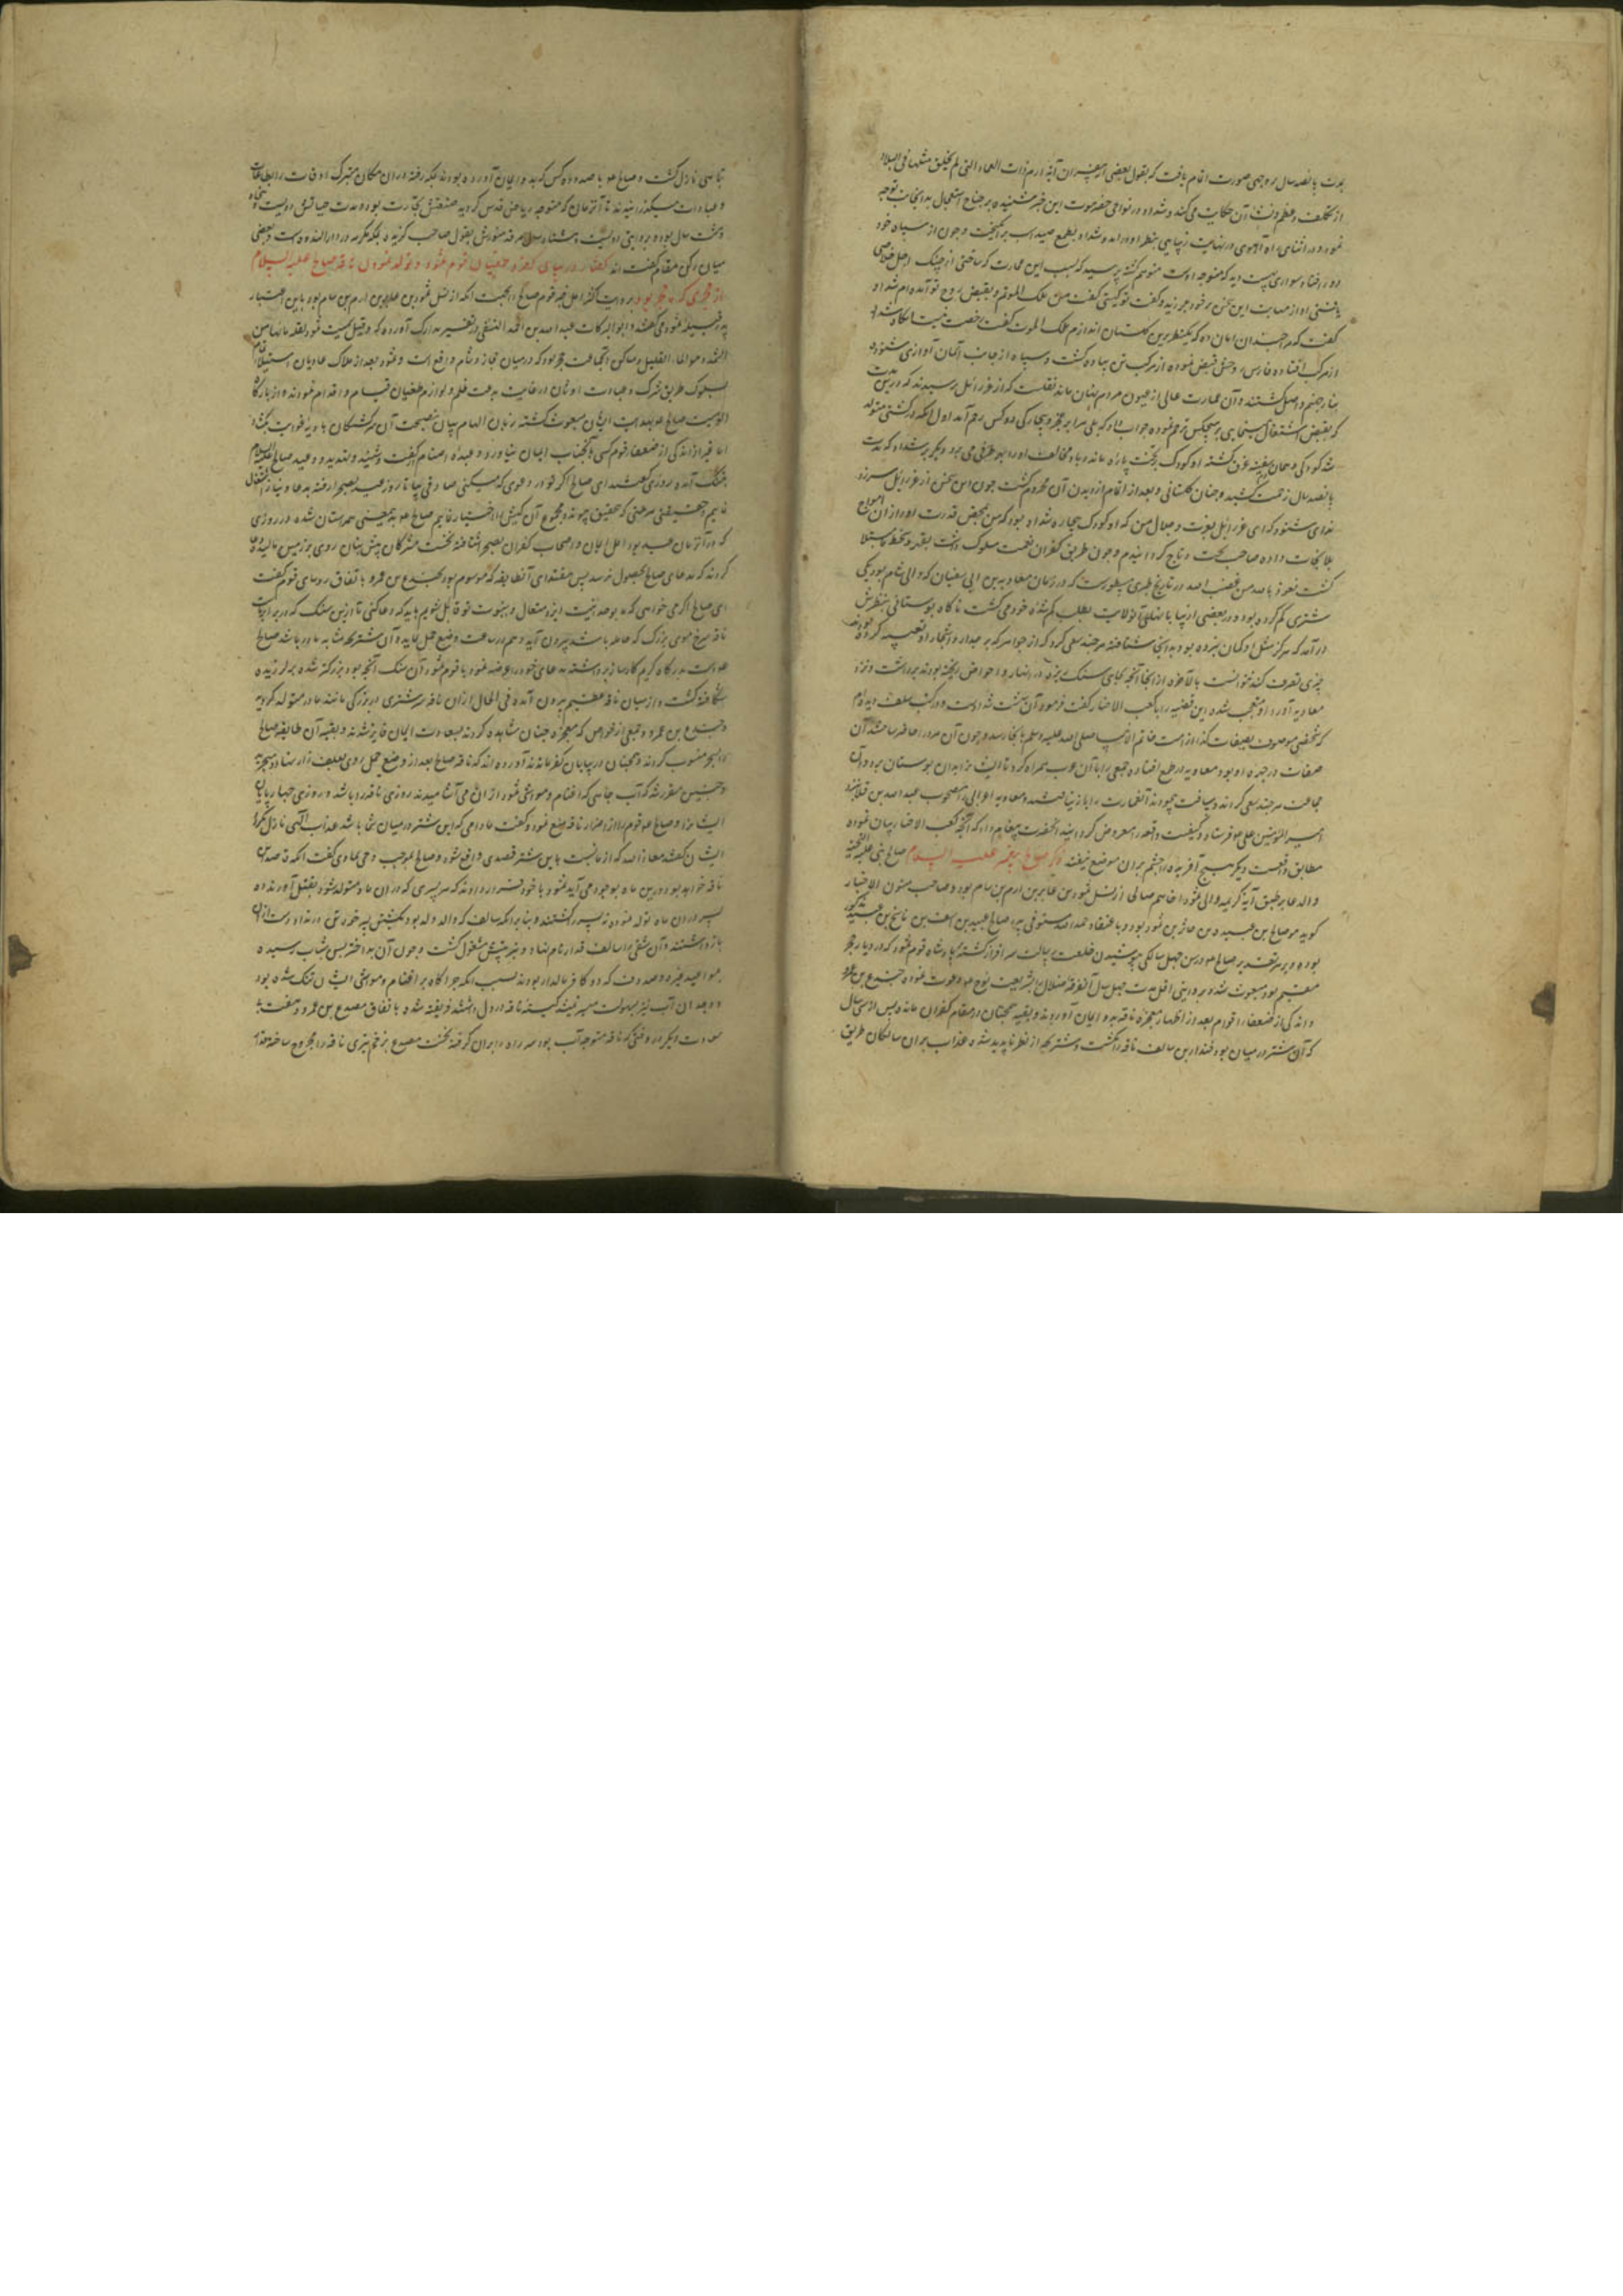 بمدت پانصد سال بر وجهی صورت اتمام یافت که بقول بعضی از مفسران آیهٔ ارم ذات العماد التی لم یخلق مثلها فی البلاد
از تکلف و عظم و شان آن حکایت می کند و شداد در نواحی حضرموت این خبر شنیده بر جناح استعجال بدانجانب توجه
نمود و در اثنای راه آهوی در نهایت زیبایی بنظر او درآمد و شداد بطمع صید اسب برانگیخت و چون از سپاه خود
دور افتاد سواری مهیب دید که متوجه اوست متوهم گشته پرسید که بسبب این عمارت که ساختی از چنک اجل خلاصی
یافتی او از مهابت این سخن بر خود بلرزید و گفت تو کیستی گفت من ملک الموتم و بقبض روح تو آمده ام شداد
گفت که مرا چندان امان ده که یکنظر برین گلستان اندازم ملک الموت گفت رخصت نیست آنگاه شداد
از مرکب افتاده فارس روحش قبض نموده از مرکب تن پیاده گشت و سپاه از جانب آسمان آوازی شنوده
بنار جهنم واصل گشتند و آن عمارت عالی از عیون مردم پنهان ماند نقلست که از عزرائیل پرسیدند که درین مدت
که بقبض اشتغال مینمایی بر هیچکس ترحم نموده جواب داد که بلی مرا بر عجز و بیچارگی دو کس رحم آمد اول آنکه در کشتی متولد
شد کودکی و همان سفینه غرق گشته او کودک بر تخت پاره ماند و باد مخالف او را بهر طرفی می برد و دیگر بر شداد که مدت
پانصد سال زحمت کشید و چنان گلستانی و بعد از اتمام از دیدن آن محروم گشت چون این سخن از عزرائیل سرزد
ندای شنود که ای عزرائیل بعزت و جلال من که او کودک بیچاره شداد بود که من بمحض قدرت او را از آن امواج
بلا نجات داده صاحب تخت و تاج گردانیدم و چون طریق کفران نعمت سلوک داشت بقهر و سخط مبتلا
گشت نعوذ بالله من غضب الله در تاریخ طبری مسطورست که در زمان معاویه بن ابی سفیان که والی شام بود یکی
شتری گم کرده بود و در بعضی از بیابانهای آن ولایت بطلب گم شده خود می گشت ناگاه بوستانی بنظرش
درآمد که هرگز مثل او گمان نبرده بود بدانجا شتافته هر چند سعی کرد که از جواهر که بر جدار و اشجار او تعبیه کرده بودند
چیزی تصرف کند نتوانست بالاخره از انجا آنچه بجای سنگ ریزه در انهار و احواض ریخته بودند برداشت و نزد
معاویه آورد او متعجب شده این قضیه را با کعب الاحبار گفت فرمود آن بهشت شداد است و در کتب سلف دیده ام
که شخصی موصوف بصفات کذا از امت خاتم الانبیا صلی الله علیه و سلم بانجا رسد و چون آن مرد را حاضر ساختند آن
صفات در چهره او بود معاویه در طمع افتاده جمعی را با آن عرب همراه کرد تا ایشانرا بدان بوستان برد و آن
جماعت هر چند سعی کردند و مسافت پیمودند آنعمارت را باز نیافتند و معاویه اعرابی را مصحوب عبدالله بن قلابه نزد
امیر المؤمنین علی ع فرستاد و کیفیت واقعه را معروض گردانید آنحضرت پیغام داد که آنچه کعب الاحبار بیان نموده
مطابق واقعست و دیگر هیچ آفریده را چشم بران موضع نیفتد ذکر صالح پیغمبر علیه السلام صالح نبی علیه التحیة
والدعا بر طبق آیه کریمه والی ثمود اخاهم صالحا از نسل ثمود بن عابر بن ارم بن سام بود و صاحب متون الاخبار
گوید هو صالح بن عبید بن حاذر بن ثمود بود و باعتقاد حمدالله مستوفی پدر صالح عبید بن آسف بن ماشخ بن عبید
بوده و بر هر تقدیر صالح ع در سن چهل سالگی بپوشیدن خلعت رسالت سرافراز گشته بارشاد قوم ثمود که در دیار حجر
مقیم بود مبعوث شد و بروایتی اقل مدت چهل سال آنفرقه ضلال بشریعت نوح ع دعوت نموده جندع بن عمرو
و اندکی از ضعفا را قوام بعد از اظهار معجزه ناقه بدو ایمان آوردند و بقیه همچنان در مقام کفران مانده پس از سی سال
که آن شتر در میان بود قدار بن سالف ناقه را بکشت و شتر بچه از نظر ناپدید شد و عذاب بران سالکان طریق
تباهی نازل گشت و صالح ع با صد و ده کس که بدو ایمان آورده بودند بمکه رفته دران مکان متبرک اوقات را بطاعات
و عبادات میگذرانیدند تا آنزمان که متوجه ریاض قدس گردید صنعتش تجارت بود و مدت حیاتش دویست و پنجاه
و هشت سال بود و بروایتی دویست و هشتاد سال مرقد منورش بقول صاحب گزیده بمکه مکرمه در دار الندوه است و بعضی
میان رکن و مقام گفته اند گفتار در بیان کفر و طغیان قوم ثمود و تولد نمودن ناقه صالح علیه السلام
از حجری که در حجر بود بروایت اکثر اهل خبر قوم صالح را بجهت آنکه از نسل ثمود بن عابر بن ارم بن سام بود باین اعتبار
پدر قبیله ثمود می گفتند و ابوالبرکات عبدالله بن احمد النسفی در تفسیر مدارک آورده که و قیل سمیت ثمود لقلة مائها من
الثمد و هو الماء القلیل و مساکن آنجماعت حجر بود که در میان حجاز و شام واقع است و ثمود بعد از هلاک عادیان استیلا
بسلوک طریق شرک و عبادت اوثان در غایت بدعت ظلم و لوازم طغیان قیام و اقدام نمودند و از بارگاه
الوهیت صالح ع بهدایت ایشان مبعوث گشته زبان الهام بیان بنصیحت آن سرگشتگان بادیه غوایت بگشاد
اما غیر از اندکی از ضعفا قوم کسی بآنجناب ایمان نیاورد و عبده اصنام
بتنگ آمده روزی گفتند ای صالح اگر تو در دعوی که میکنی صادقی بیا تا روز عید بصحرا رفته بدعا و نیاز اشتغال
نماییم
که در آنزمان عید بود اهل ایمان و اصحاب کفران بصحرا شتافته نخست مشرکان پیش بتان روی بر زمین مالیده دعا
کردند که مدعای صالح بحصول نرسد پس مقتدای آنطایفه که موسوم بود بجندع بن عمرو باتفاق روسای قوم گفت
ای صالح اگر می خواهی که ما بوحدانیت ایزد متعال و نبوت تو قایل شویم باید که دعا کنی تا ازین سنگ که در برابرست
ناقه سرخ موی بزرگ که حامله باشد بیرون آید و هم در ساعت وضع حمل نماید و آن شتر بچه مشابه مادر باشد صالح
ع دست بدرگاه کریم کارساز برداشته مدعای خود را عرضه نمود تا قوم ثمود آن سنگ آنچه بود بزرگتر شده بلرزیده
شکافته گشت و از میان ناقه عظیم بیرون آمده فی الحال از آن ناقه سر شتری در بزرگی مانند مادر متولد گردید
و جندع بن عمرو و جمعی از خواص که معجزه چنان مشاهده کردند بسعادت ایمان فایز شدند و بقیه آن طایفه صالح
را بسحر منسوب کردند و همچنان در بیابان کفر ماندند آورده اند که ناقه صالح بعد از وضع حمل روی بعلف زار نهاد و بچرید
و چنین مقرر شد که آب چاهی که اغنام و مواشی ثمود از آن می آشامیدند روزی ناقه را باشد و روزی چهار پایان
ایشانرا و صالح ع قوم را از اضرار ناقه منع نمود و گفت مادامی که این شتر در میان شما باشد عذاب الهی نازل نگردد
ایشان گفتند معاذ الله که از ما نسبت باین شتر قصدی واقع شود و صالح بموجب وحی سماوی گفت آنکه قاصد این
ناقه خواهد بود درین ماه بوجود می آید ثمود با خود قرار دادند که هر پسری که دران ماه متولد شود بقتل آورند ده
پسر دران ماه تولد نمود نه پسر را کشتند و بنابر آنکه سالف که والد ولد بود بکشتن پسر خود رضا نداد دست ازان
بازداشتند و آن شقی را سالف قدار نام نهاد و بتربیتش مشغول گشت و چون آن بد اختر بسن شباب رسیده
بود عنیزه و صدوف که دو کافر مالدار بودند بسبب آنکه چراگاه بر اغنام و مواشی ایشان تنگ شده بود
و وجدان آب نیز بسهولت میسر نمیشد کینه ناقه در دل داشتند فریفته شده باتفاق مصدع بن عمرو و هفت
دیگر در وقتی که ناقه متوجه آب بود سر راه بران گرفته نخست مصدع بزخم تیری ناقه را مجروح ساخته